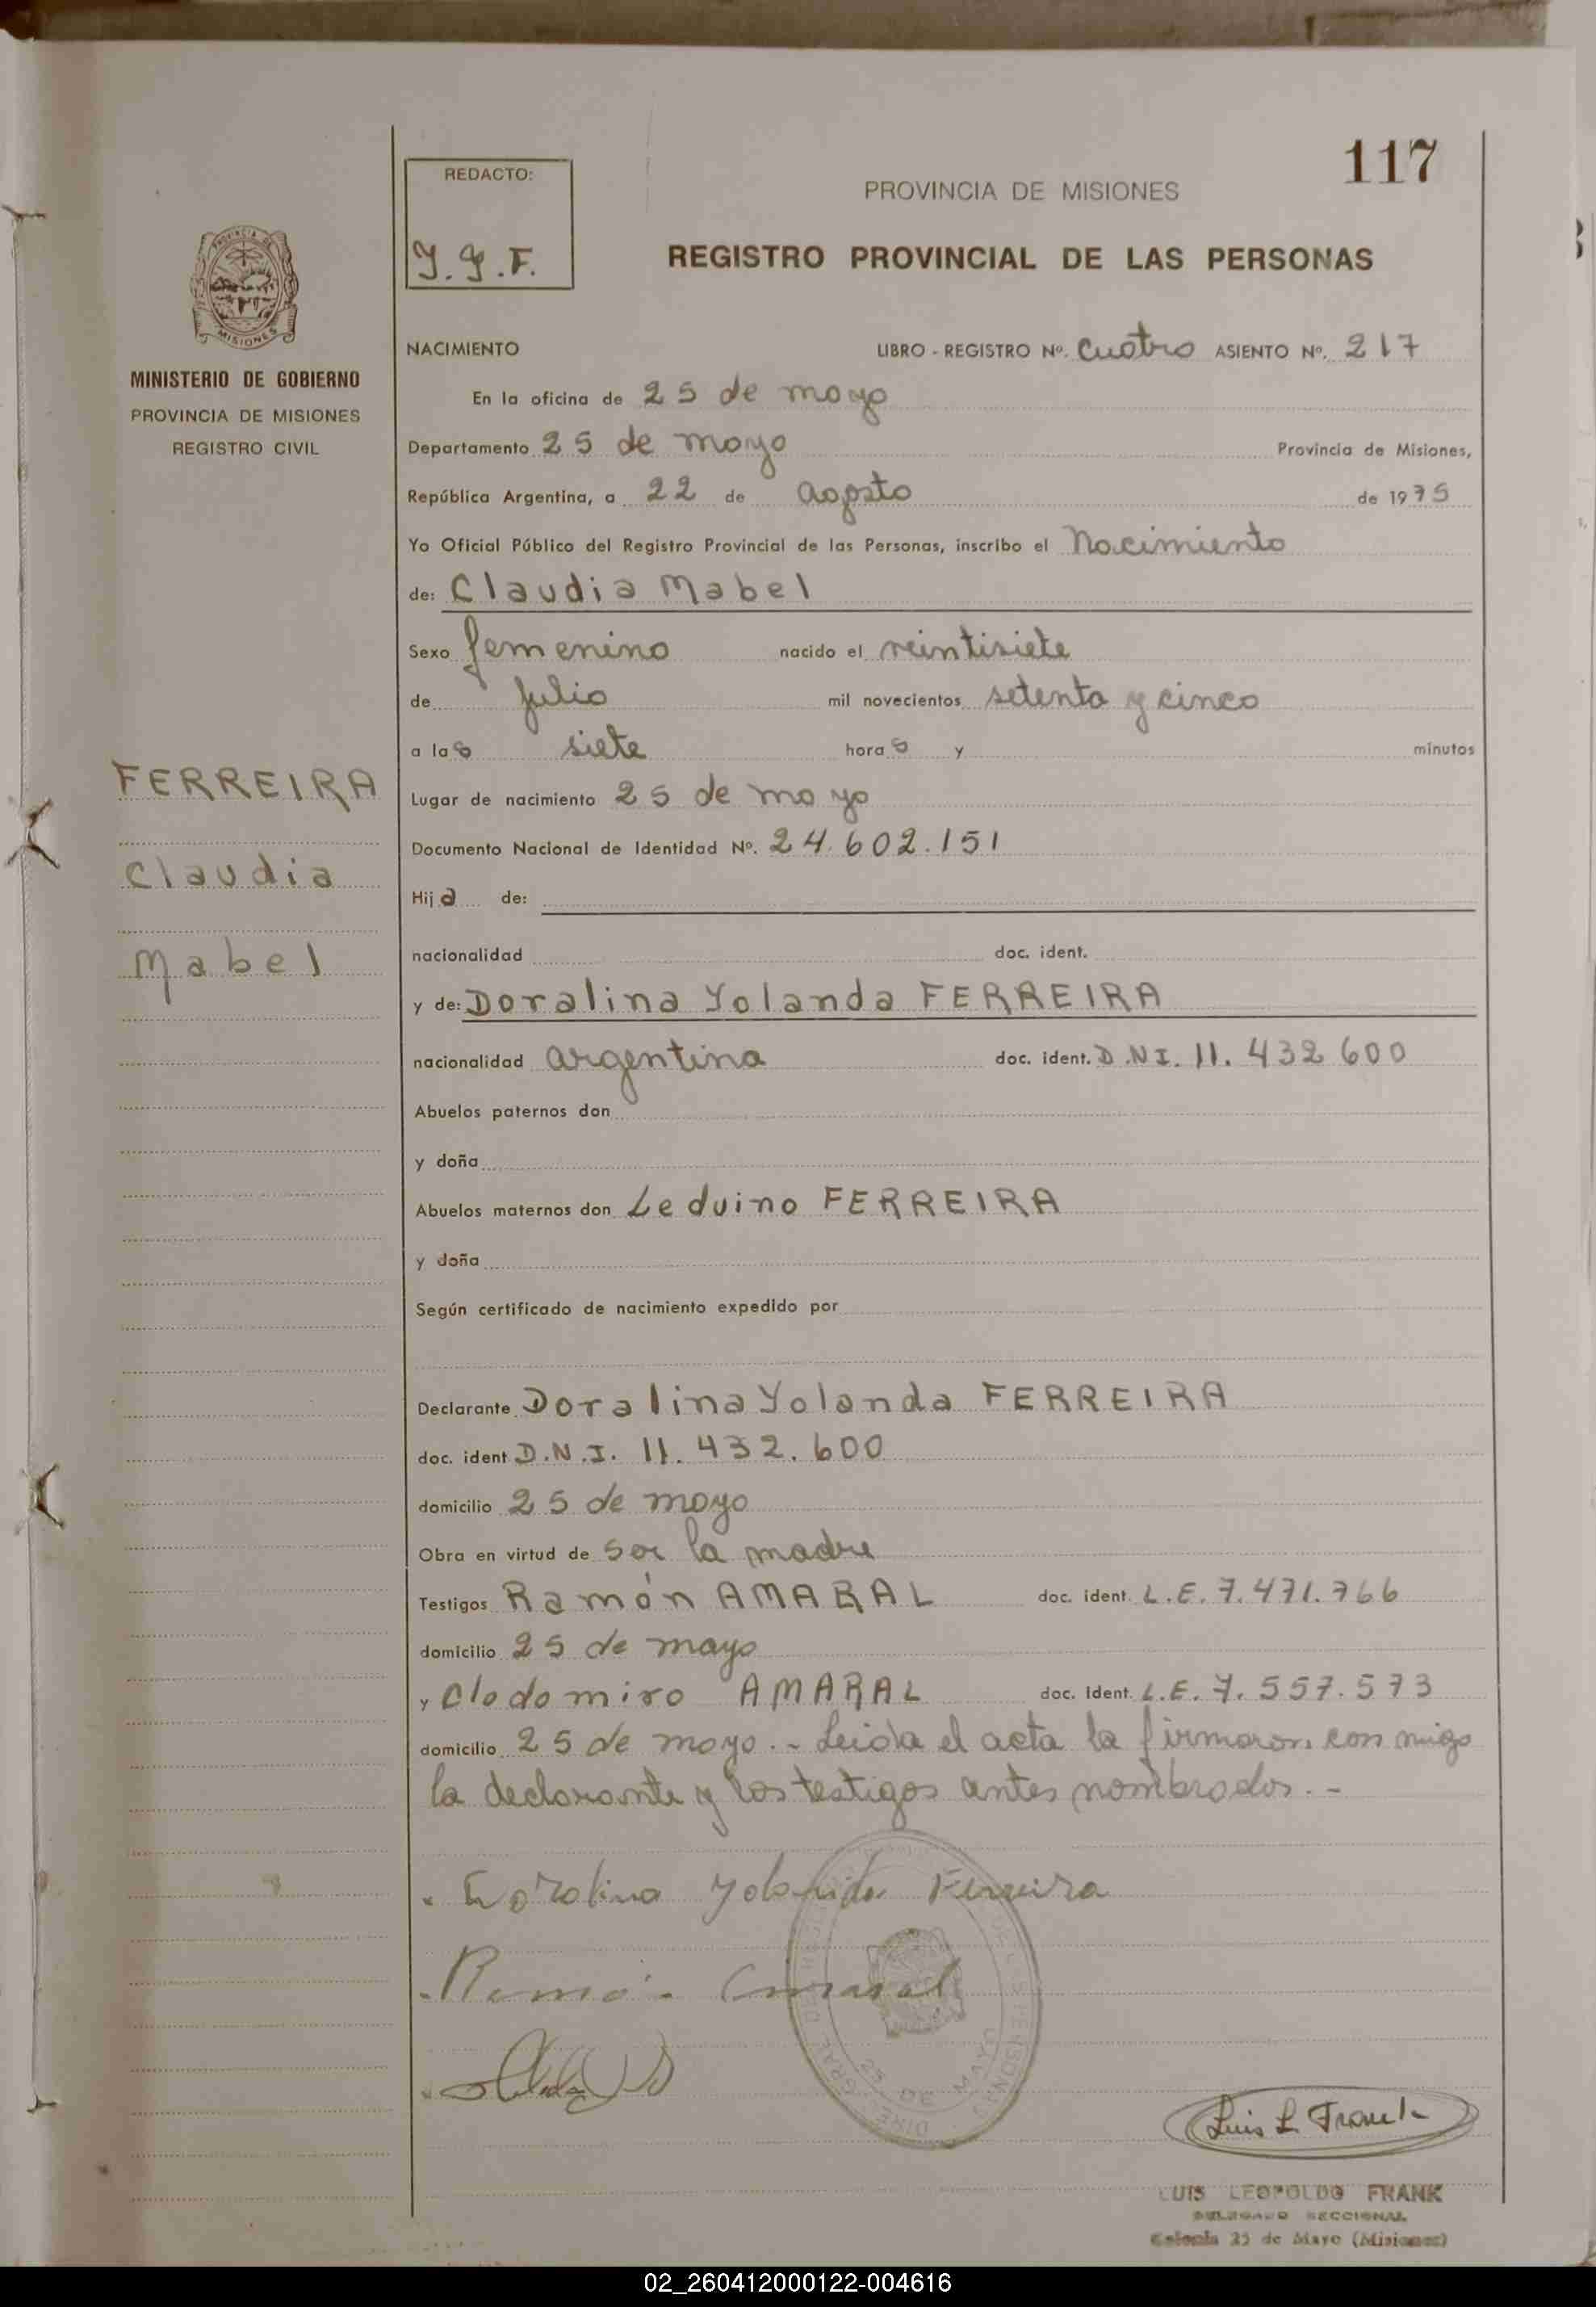 117
REDACTO:
PROVINCIA DE MISIONES
Y.G.F.
REGISTRO PROVINCIAL DE LAS PERSONAS
MISIONES
MINISTERIO DE GOBIERNO
PROVINCIA DE MISIONES
REGISTRO CIVIL
FERREIRA
Claudia
Mabel
NACIMIENTO LIBRO - REGISTRO Nº. Cuatro ASIENTO Nº. 217
En la oficina de 25 de mayo
Departamento 25 de mayo Provincia de Misiones,
República Argentina, a 22 de agosto de 1975
Yo Oficial Público del Registro Provincial de las Personas, inscribo el Nacimiento
de: Claudia Mabel
Sexo femenino nacido el veintisiete
de julio mil novecientos setenta y cinco
a las siete horas y minutos
Lugar de nacimiento 25 de mayo
Documento Nacional de Identidad Nº. 24.602.151
Hija de:
nacionalidad doc. ident.
y de: Doralina Yolanda FERREIRA
nacionalidad argentina doc. ident. D.N.I. 11.432.600
Abuelos paternos don
y doña
Abuelos maternos don Leduino FERREIRA
y doña
Según certificado de nacimiento expedido por
Declarante Doralina Yolanda FERREIRA
doc. ident D.N.I. 11.432.600
domicilio 25 de mayo
Obra en virtud de ser la madre
Testigos Ramón AMARAL doc. ident. L.E. 7.471.766
domicilio 25 de mayo
y Clodomiro AMARAL doc. ident. L.E. 7.557.573
domicilio 25 de mayo.- Leida el acta la firmaron con migo
la declarante y los testigos antes nombrados.-
Doralina Yolanda Ferreira
Ramón Amaral
25 DE MAYO
Luis L. Frank
LUIS LEOPOLDO FRANK
DELEGADO SECCIONAL
Colonia 25 de Mayo (Misiones)
02_260412000122-004616